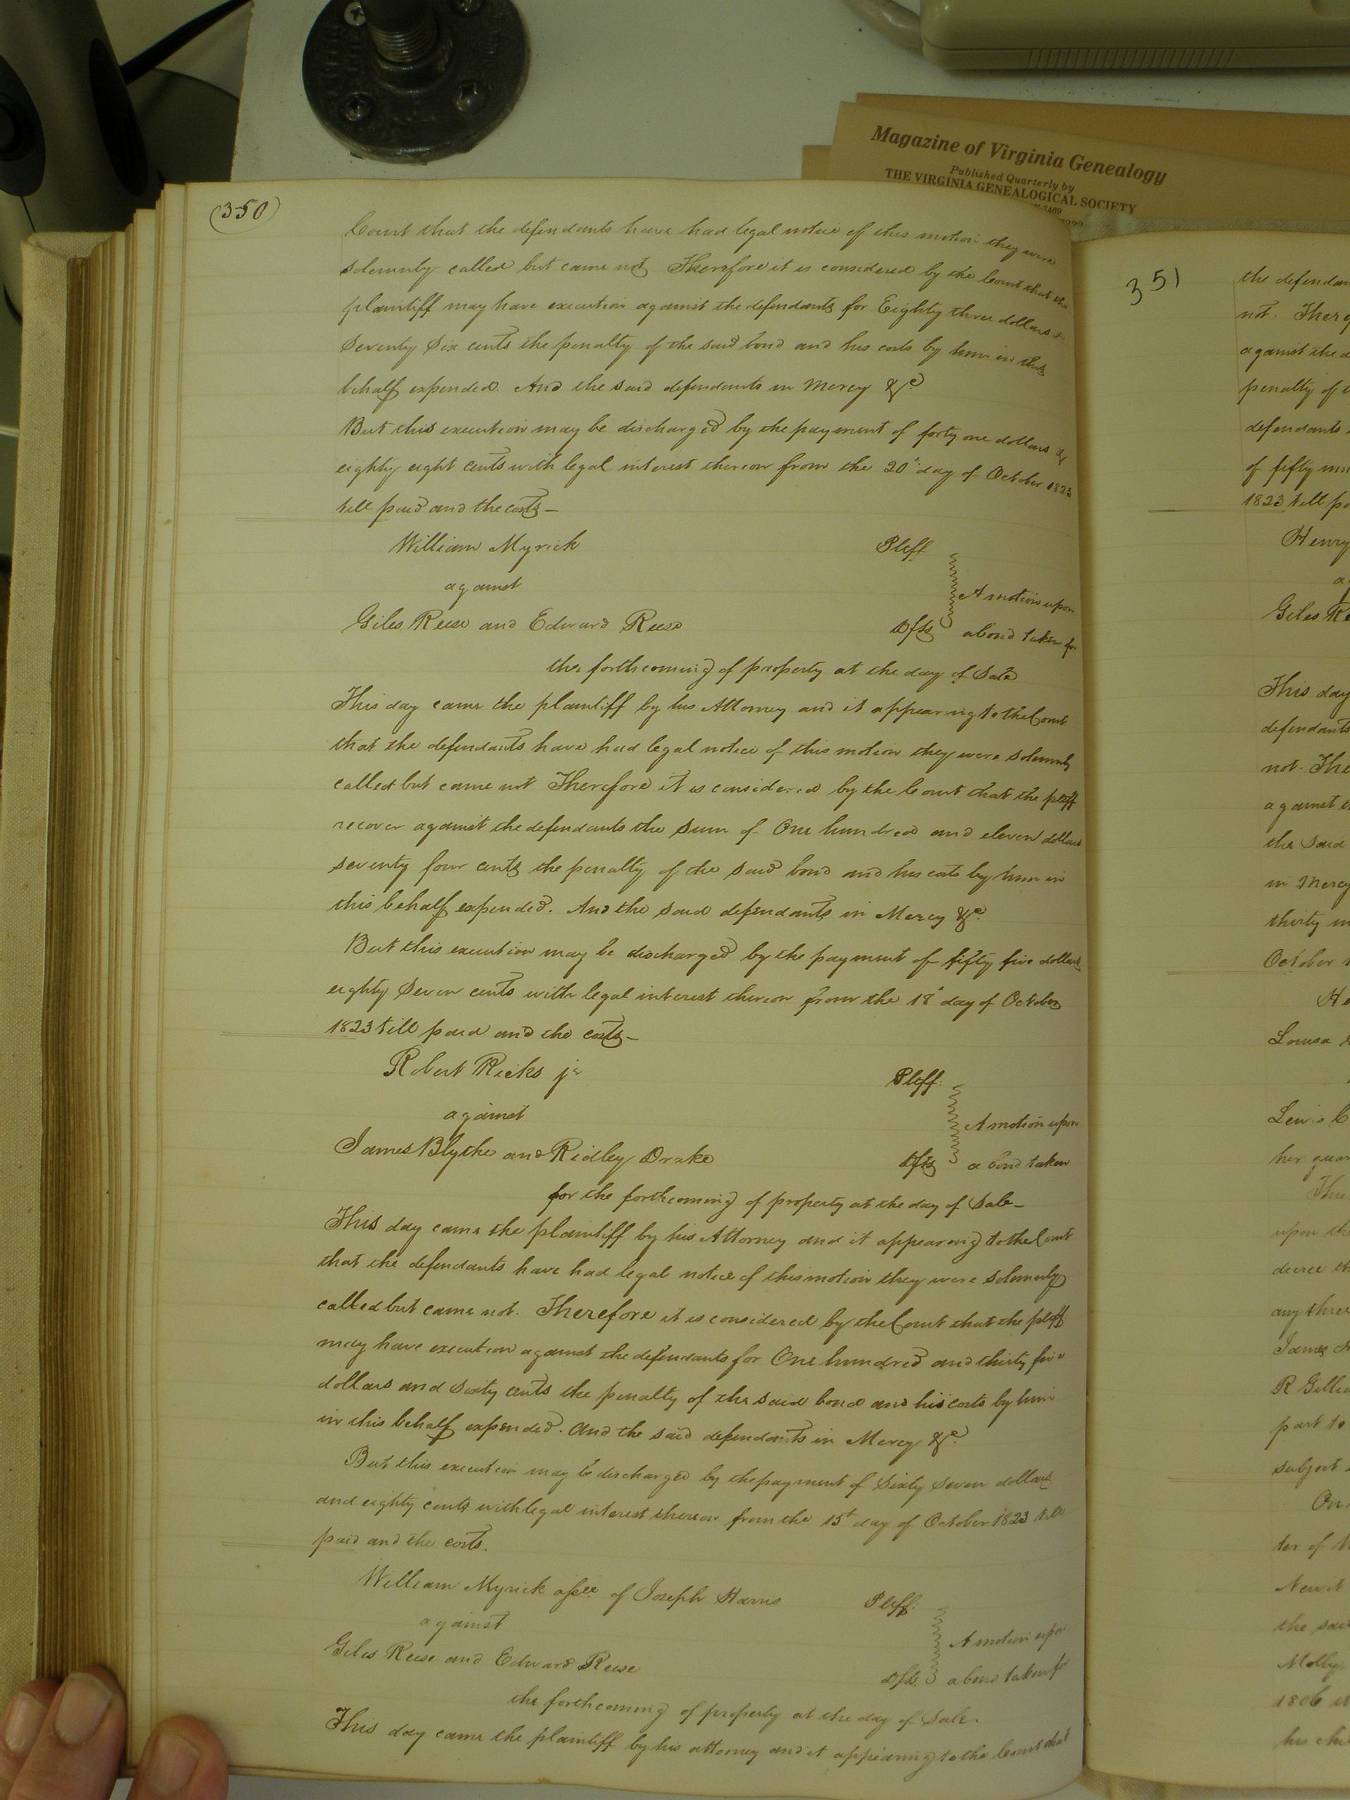 Magazine of Virginia Genealogy
Published Quarterly by
THE VIRGINIA GENEALOGICAL SOCIETY
(350)
Court that the defendants have had legal notice of this motion they were
solemnly called but came not Therefore it is considered by the Court that the
plaintiff may have execution against the defendants for Eighty three dollars &
Seventy Six cents the penalty of the said bond and his costs by him in this
behalf expended. And the said defendants in Mercy &c
But this execution may be discharged by the payment of forty one dollars &
eighty eight cents with legal interest thereon from the 20t day of October 1823
till paid and the costs—
William Myrick Pltff
against
A motion upon
Giles Reese and Edward Reese Dfts a bond taken for
the forthcoming of property at the day of Sale
This day came the plaintiff by his Attorney and it appearing to the Court
that the defendants have had legal notice of this motion they were solemnly
called but came not Therefore it is considered by the Court that the pltff
recover against the defendants the sum of One hundred and eleven dollars
seventy four cents the penalty of the said bond and his costs by him in
this behalf expended. And the said defendants in Mercy &c.
But this execution may be discharged by the payment of fifty five dollars
eighty Seven cents with legal interest thereon from the 18t day of October
1823 till paid and the costs—
Robert Ricks jr Pltff
against
A motion upon
James Blythe and Ridley Drake Dfts a bond taken
for the forthcoming of property at the day of Sale—
This day came the plaintiff by his Attorney and it appearing to the Court
that the defendants have had legal notice of this motion they were solemnly
called but came not. Therefore it is considered by the Court that the pltff
may have execution against the defendants for One hundred and thirty five
dollars and Sixty cents the penalty of the said bond and his costs by him
in this behalf expended. And the said defendants in Mercy &c.
But this execution may be discharged by the payment of Sixty Seven dollars
and eighty cents with legal interest thereon from the 15t day of October 1823 till
paid and the costs.
William Myrick assee of Joseph Harris Pltff.
against
A motion upon
Giles Reese and Edward Reese Dfts. a bond taken for
the forthcoming of property at the day of Sale.
This day came the plaintiff by his attorney and it appearing to the Court that
351
the defendan
not. There
against the d
penalty of
defendants
of fifty
1823 till pa
Henry
Giles Re
This day
defendants
not. The
against
the said
in Mercy
thirty
October
He
Louisa
Lewis
her guar
This
upon the
decree th
any three
James
R Gillia
part to
subject
On
ter of
the said
Molly
1806
his